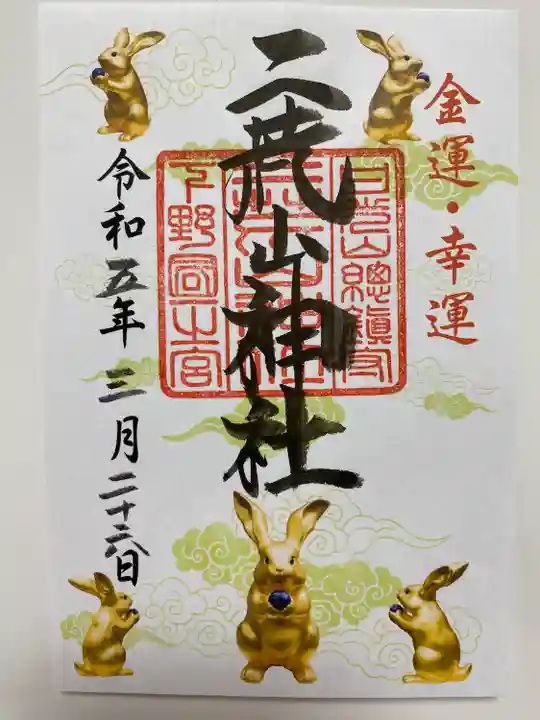 金運・幸運
二荒山神社
日光山總鎮守
下野國一之宮
令和五年 三月二十六日